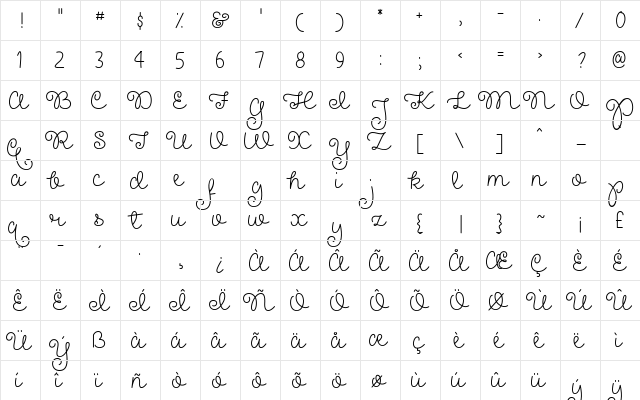 ! " # $ % & ' ( ) * + , - . / 0
1 2 3 4 5 6 7 8 9 : ; < = > ? @
A B C D E F G H I J K L M N O P
Q R S T U V W X Y Z [ \ ] ^ _
a b c d e f g h i j k l m n o p
q r s t u v w x y z { | } ~ ¡ £
¨ ¯ ´ · ¸ ¿ À Á Â Ã Ä Å Æ Ç È É
Ê Ë Ì Í Î Ï Ñ Ò Ó Ô Õ Ö Ø Ù Ú Û
Ü Ý ß à á â ã ä å æ ç è é ê ë ì
í î ï ñ ò ó ô õ ö ø ù ú û ü ý ÿ